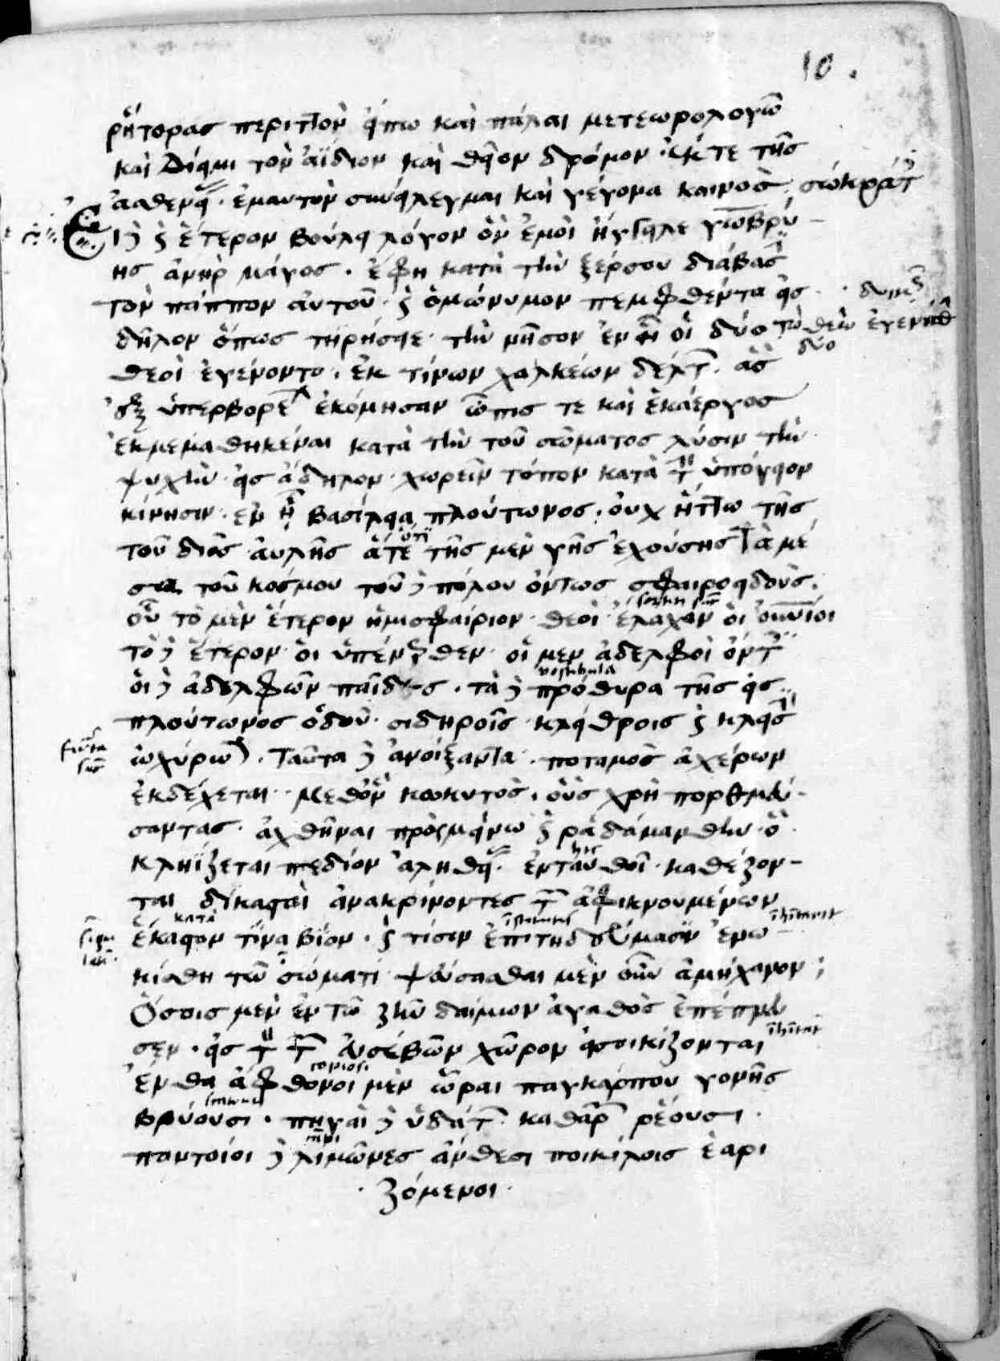 10.
ῥήτορας περιττὸν εἴπω καὶ πάλαι μετεωρολογῶ
καὶ δίειμι τὸν ἀΐδιον καὶ θεῖον δρόμον. ἔκ τε τῆς
ἀσθενεί. ἐμαυτὸν συνείλεγμαι καὶ γέγονα καινός. σώκρατ
εἰ δὲ καὶ ἕτερον βούλει λόγον ὃν ἐμοὶ ἤγγειλε γωβρύ
ης ἀνὴρ μάγος. ἔφη κατὰ τὴν ξέρξου διάβασ
τὸν πάππον αὐτοῦ καὶ ὁμώνυμον πεμφθέντα εἰς
δῆλον ὅπως τηρήσειε τὴν νῆσον ἐν ᾗ οἱ δύο τὼ θεὼ ἐγεν
δύο
θεοὶ ἐγένοντο. ἐκ τίνων χαλκέων δέλτ. ἃς
ἐξ ὑπερβορέ ἐκόμησαν ὦπίς τε καὶ ἑκάεργος
ἐκμεμαθηκέναι κατὰ τὴν τοῦ σώματος λύσιν τὴν
ψυχὴν εἰς ἄδηλον χωρεῖν τόπον κατὰ τ ὑπόγειον
κίνησιν. ἐν ᾗ βασίλεια πλούτωνος. οὐχ ἥττω τῆς
τοῦ διὸς αὐλῆς ἅτε τῆς μὲν γῆς ἐχούσης τὰ μέ
σα τοῦ κόσμου τοῦ δὲ πόλου ὄντος σφαιροειδοῦς.
οὗ τὸ μὲν ἕτερον ἡμισφαίριον θεοὶ ἔλαχον οἱ οὐράνιοι
τὸ δὲ ἕτερον οἱ ὑπένερθεν οἱ μὲν ἀδελφοὶ ὄντ
οἱ δὲ ἀδελφῶν παῖδες. τὰ δὲ πρόθυρα τῆς εἰς
vestibula
πλούτωνος ὁδοῦ σιδηροῖς κλείθροις καὶ κλεισὶ
ὠχύρω. ταῦτα δὲ ἀνοίξαντα ποταμὸς ἀχέρων
ἐκδέχεται. μεθ' ὃν κωκυτός. οὓς χρὴ πορθμεύ
σαντας ἀχθῆναι πρὸς μείνω καὶ ῥαδάμανθυν ὃ
κληΐζεται πεδίον ἀληθεί. ἐνταυθοῖ καθέζον
ται δικασταὶ ἀνακρίνοντες τ ἀφικνουμένων
κατὰ
ἕκαστον τίνα βίον. καὶ τίσιν ἐπιτηδεύμασιν ἐνῳ
κίσθη τῷ σώματι ψεύσασθαι μὲν οὖν ἀμήχανον
ὅσοις μὲν ἐν τῷ ζῆν δαίμων ἀγαθὸς ἐπέπνευ
σεν. εἰς τ τ εὐσεβῶν χῶρον εἰσοικίζονται
ἔνθα ἄφθονοι μὲν ὧραι παγκάρπου γονῆς
βρύουσι. πηγαὶ δὲ ὑδάτ καθαρ ῥέουσι.
παντοῖοι δὲ λιμῶνες ἄνθεσι ποικίλοις ἐαρι
ζόμενοι.